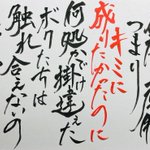 つまり
キミに
成りたかったのに
何処かで掛違えた
ボクたちは
触れ合えないの